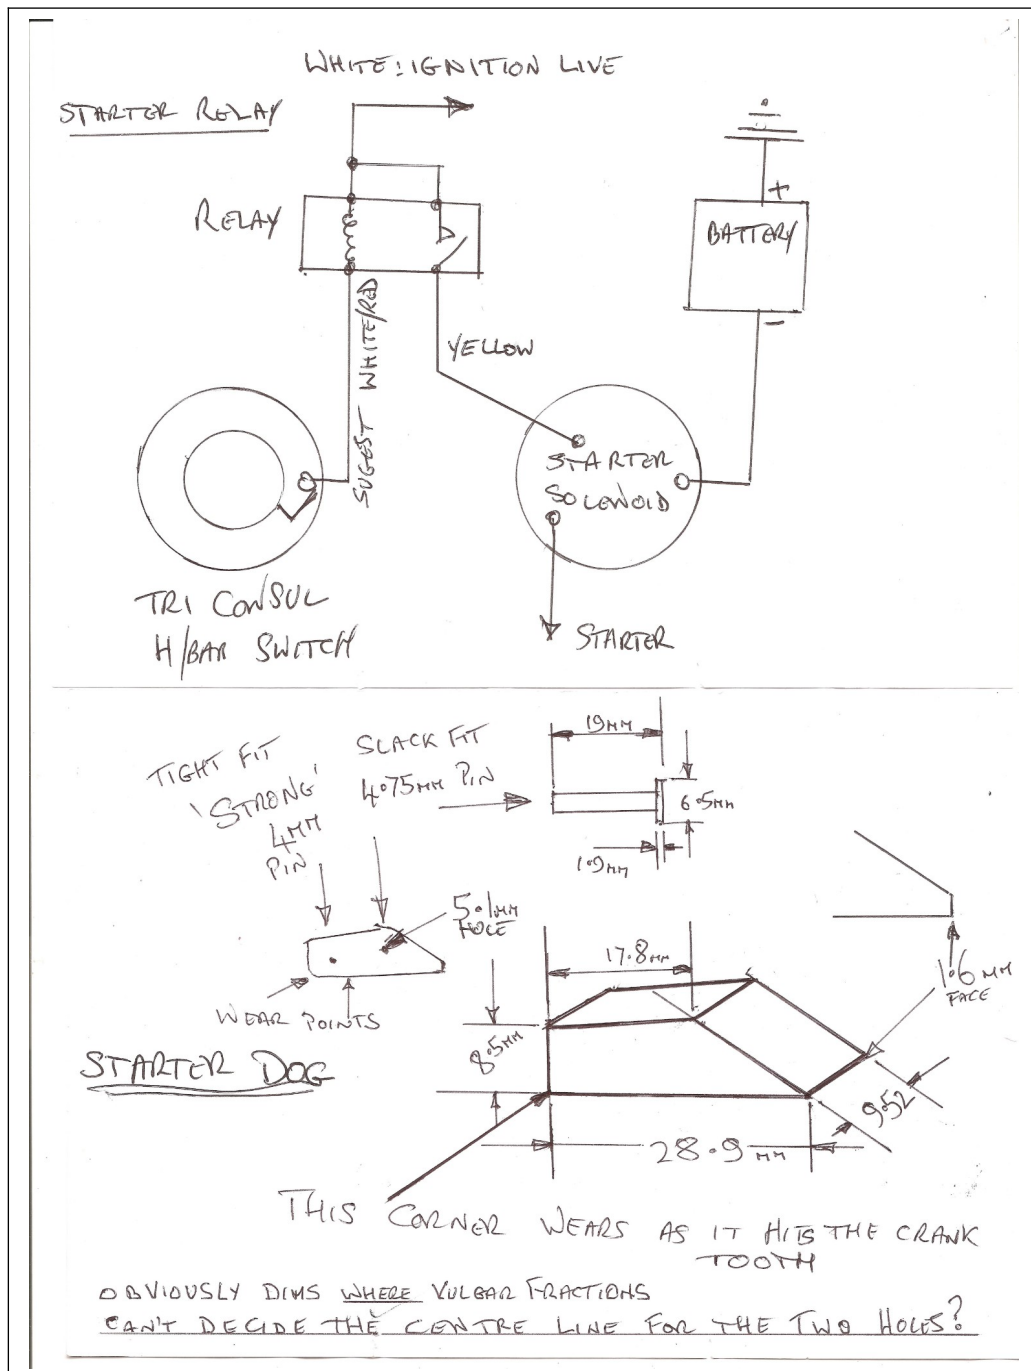 WHITE: IGNITION LIVE
STARTER RELAY
RELAY
+
BATTERY
-
SUGEST WHITE/RED
YELLOW
STARTER
SOLENOID
TRI CONSUL
H/BAR SWITCH
STARTER
TIGHT FIT
'STRONG'
4MM
PIN
SLACK FIT
4.75MM PIN
19MM
6.5MM
1.9MM
5.1MM
HOLE
17.8MM
1.6MM
FACE
WEAR POINTS
8.5MM
STARTER DOG
9.52
28.9MM
THIS CORNER WEARS AS IT HITS THE CRANK
TOOTH
OBVIOUSLY DIMS WHERE VULGAR FRACTIONS
CAN'T DECIDE THE CENTRE LINE FOR THE TWO HOLES?